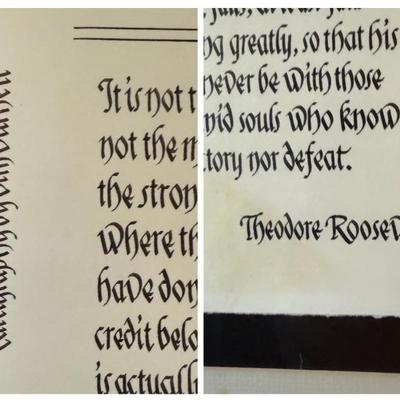 It is not t
not the m
the stron
where th
have don
credit belo
is actuall
ng greatly, so that his
never be with those
mid souls who know
tory nor defeat.
Theodore Roosev